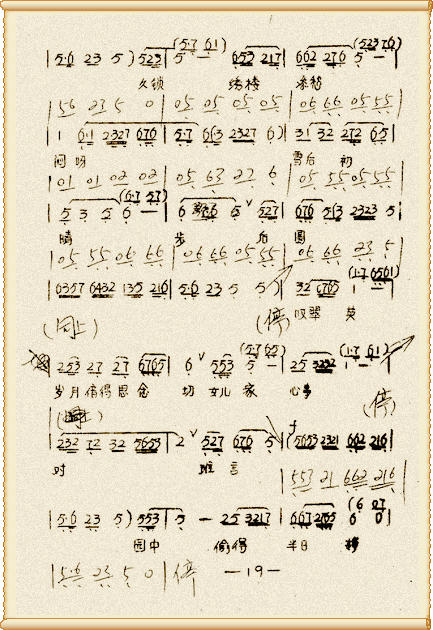 |5·6 23 5 )523|5 — 653 217|662 276 5 —|
(5·7 61)
(523 76)
久锁 绣楼 添愁
|56 23 5 0|05 05 05 05|05 66 05 55|
1 6·1 2327 676|5·7 6(3 2327 6)|31 32 272 6·5|
问明 雪后 初
|01 01 02 02|05 63 22 6|05 55 05 55|
(6·7 57)
|5 3 5 6 —|6 5 ∨ 527|676 5(3 2323 5|
晴 步 后 园
|05 55 06 66|06 66 05 55|06 66 23 5|
6357 6432 135 216|5·6 23 5 5)|32 6765 1 —|
(1·7 6561)
(同上) (停) 叹翠 英
|253 27 27 6765|6 ∨ 553 5 —|25 3232 1 —|
(5·7 65)
(1·7 61)
岁月 值得 思念 切 女儿 家 心事
(停)
|232 72 32 5653|2 ∨ 527 676 5|5653 2321 662 216|
对 谁言
|553 21 662 216|
|5·6 23 5 )553|5 — 25 3217|667 2765 6 0|
(6 07
园中 偷得 半日
|5·6 23 5 0|停
—19—